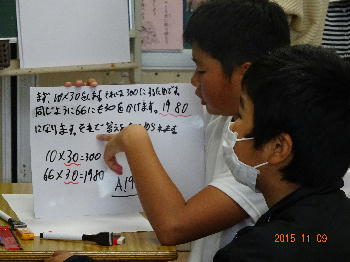 まず、10×30をします。それは300にするためです。
同じように66にも30をかけます。1980
になります。それで答えを
10×30=300
66×30=1980
A19
2015 11 09